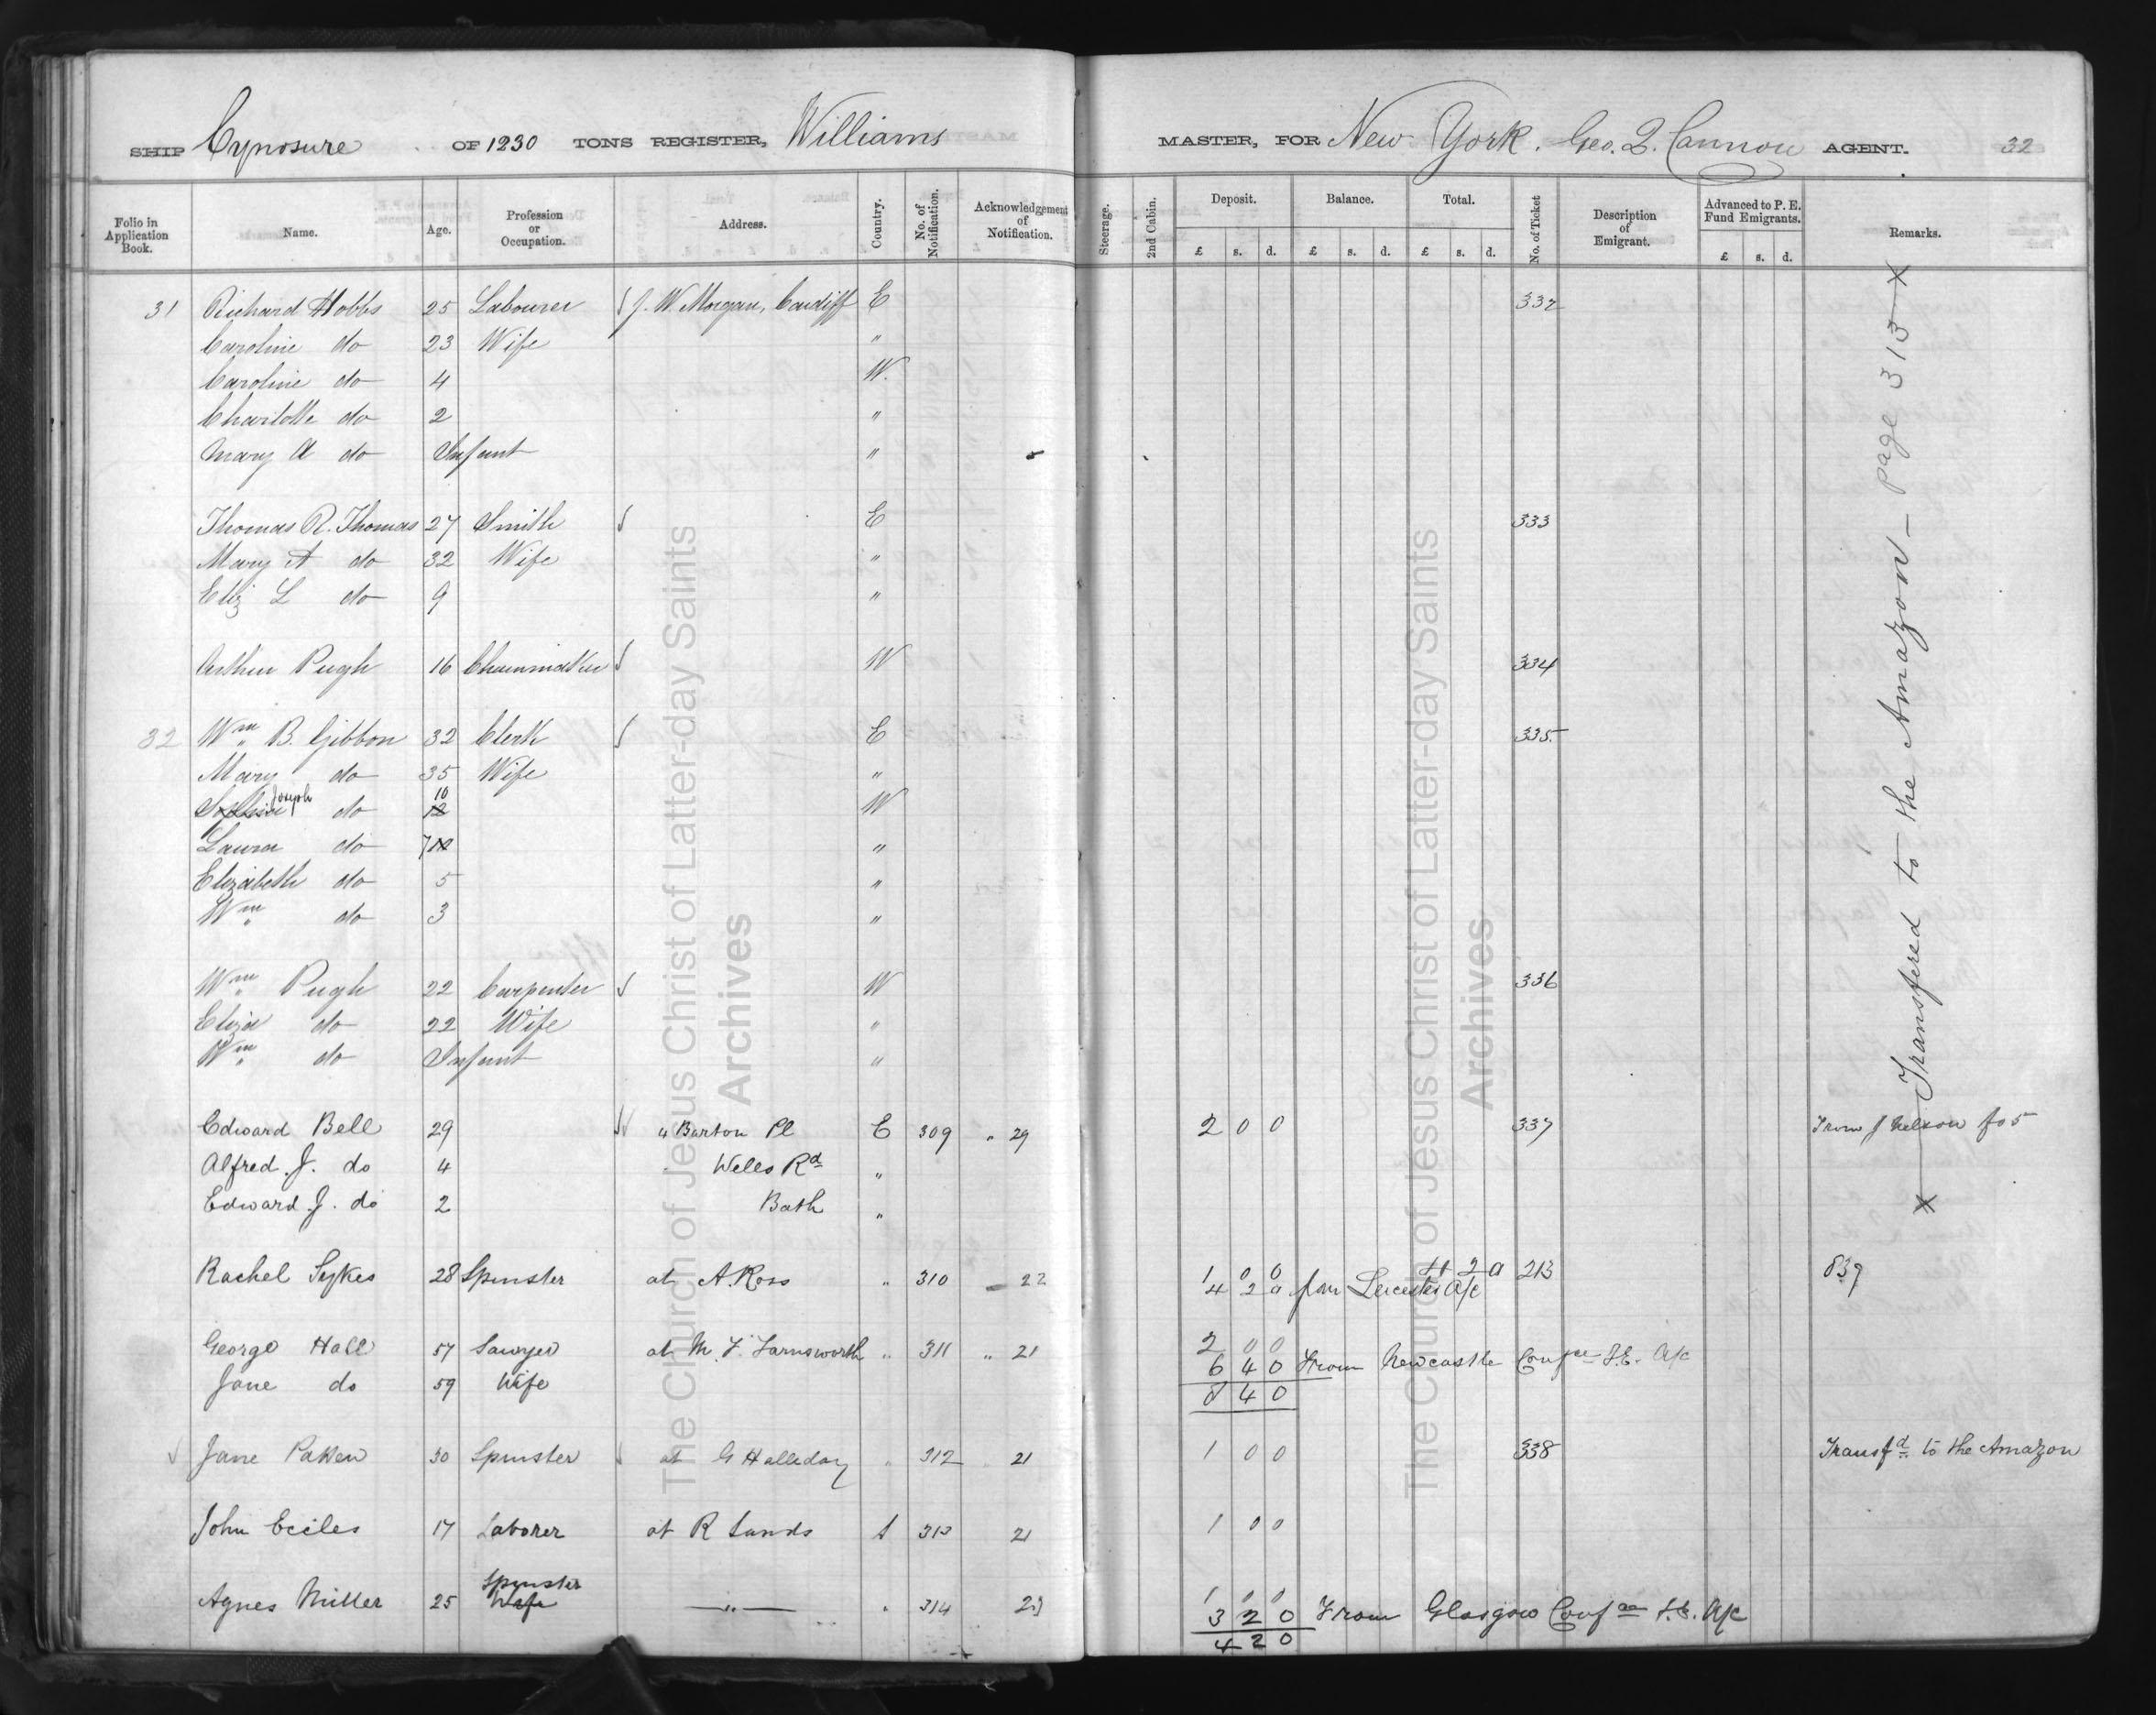 SHIP Cynosure OF 1230 TONS REGISTER, Williams MASTER, FOR New York. Geo. Q. Cannon AGENT. 32
Folio in Application Book. Name. Age. Profession or Occupation. Address. Country. No. of Notification. Acknowledgement of Notification. Steerage. 2nd Cabin. Deposit. £ s. d. Balance. £ s. d. Total. £ s. d. No. of Ticket Description of Emigrant. Advanced to P. E. Fund Emigrants. £ s. d. Remarks.
31 Richard Hobbs 25 Labourer J. W. Morgan, Cardiff E 332
Caroline do 23 Wife "
Caroline do 4 W.
Charlotte do 2 "
Mary A do Infant "
Thomas R. Thomas 27 Smith E 333
Mary A do 32 Wife "
Eliz L do 9 "
Arthur Pugh 16 Chainmaker W 334
32 Wm B. Gibbon 32 Clerk E 335
Mary do 35 Wife "
Joseph do 10 12 W
Laura do 7 "
Elizabeth do 5 "
Wm do 3 "
Wm Pugh 22 Carpenter W 336
Eliza do 22 Wife "
Wm do Infant "
x Transfered to the Amazon - page 313 x
Edward Bell 29 4 Barton Pl E 309 " 29 2 0 0 337 From J Nelson fo 5
Alfred J. do 4 Wells Rd "
Edward J. do 2 Bath "
Rachel Sykes 28 Spinster at A. Ross " 310 22 1 0 0 213 839
4 2 0 from Leicester A/c
George Hall 57 Sawyer at M. F. Farnsworth " 311 " 21 2 0 0
6 4 0 From Newcastle Confce I.E. A/c
Jane do 59 Wife 8 4 0
Jane Patten 30 Spinster at G Halliday 312 21 1 0 0 338 Transfd to the Amazon
John Eccles 17 Laborer at R Sands 313 21 1 0 0
Spinster
Agnes Miller 25 Wife " 314 1 0 0
3 2 0 From Glasgow Confce I.E. A/c
4 2 0
The Church of Jesus Christ of Latter-day Saints
Archives
The Church of Jesus Christ of Latter-day Saints
Archives